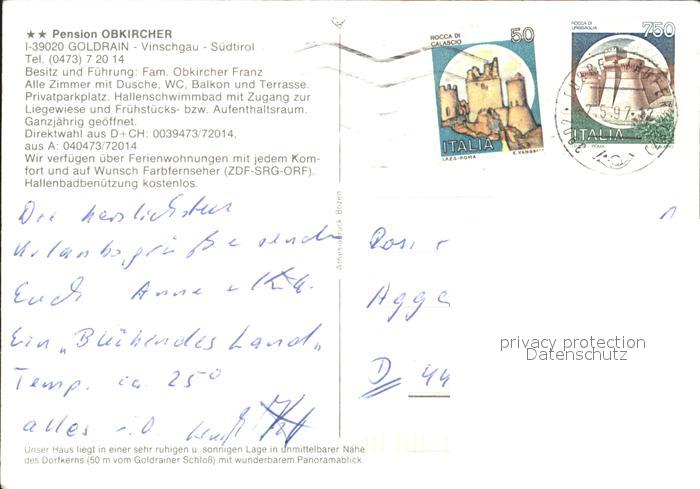 ★★ Pension OBKIRCHER
I-39020 GOLDRAIN - Vinschgau - Südtirol
Tel. (0473) 7 20 14
Besitz und Führung: Fam. Obkircher Franz
Alle Zimmer mit Dusche, WC, Balkon und Terrasse.
Privatparkplatz. Hallenschwimmbad mit Zugang zur
Liegewiese und Frühstücks- bzw. Aufenthaltsraum.
Ganzjährig geöffnet.
Direktwahl aus D+CH: 0039473/72014,
aus A: 040473/72014
Wir verfügen über Ferienwohnungen mit jedem Kom-
fort und auf Wunsch Farbfernseher (ZDF-SRG-ORF).
Hallenbadbenützung kostenlos.
Die herzlichsten
Urlaubsgrüße sende
Euch Anne
Ein „Blühendes Land"
Temp. ca. 25°
alles i.O.
Unser Haus liegt in einer sehr ruhigen u. sonnigen Lage in unmittelbarer Nähe
des Dorfkerns (50 m vom Goldrainer Schloß) mit wunderbarem Panoramablick.
Athesiadruck Bozen
ROCCA DI
CALASCIO
50
ITALIA
I.P.Z.S.-ROMA
ROCCA DI
URBISAGLIA
750
ITALIA
D 44
privacy protection
Datenschutz